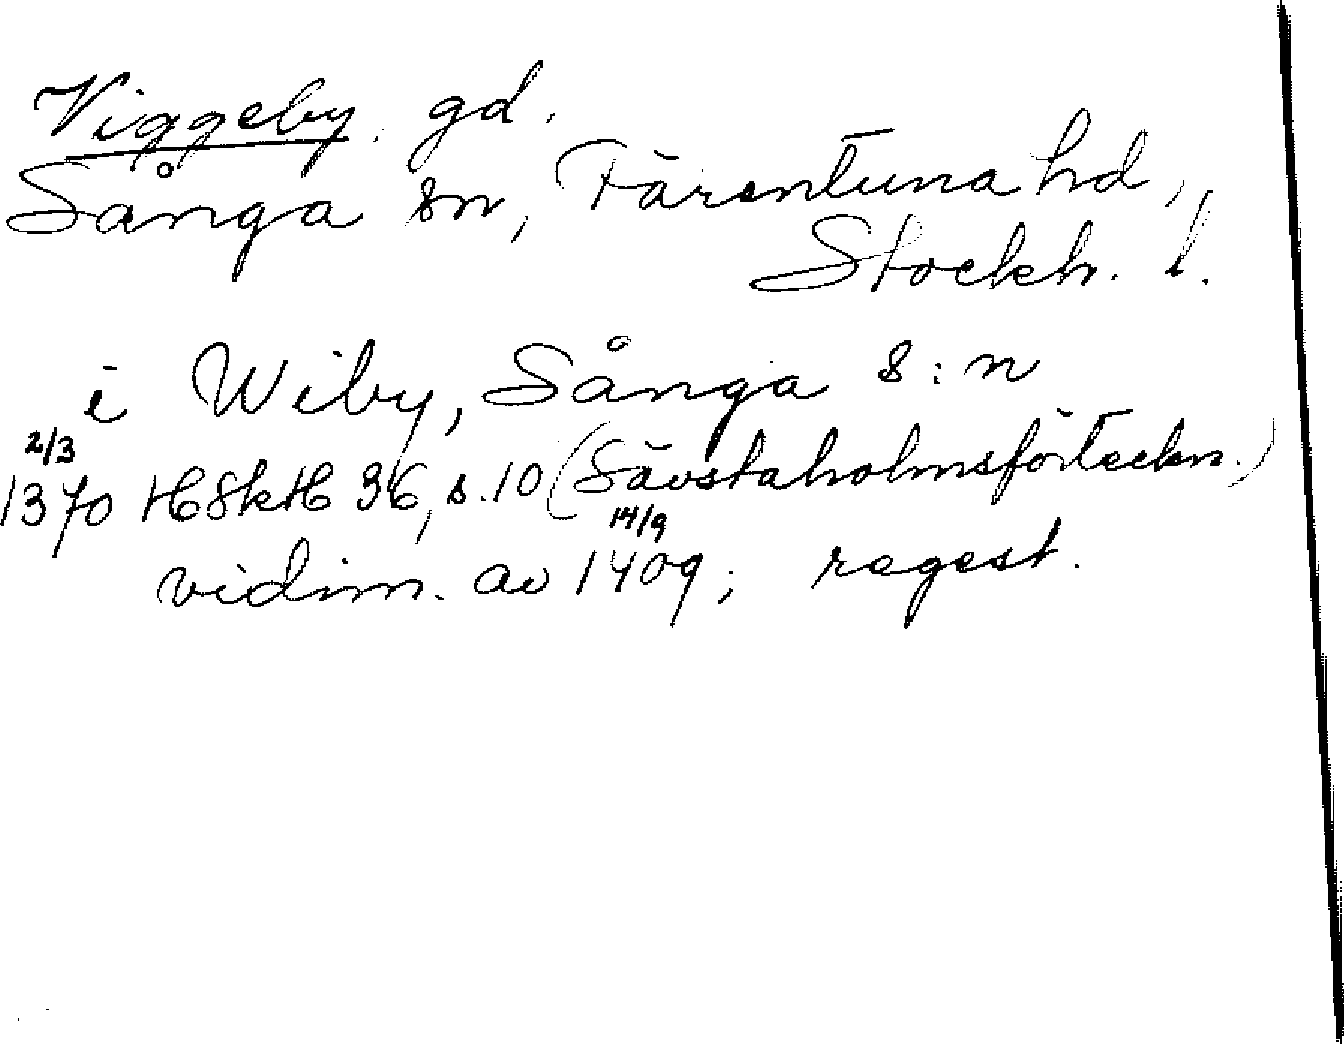 Viggeby. gd.
Sånga sn, Färentuna hd,
Stockh. l.
i Wiby, Sånga s:n
2/3
1370 HSkH 36, s. 10 (Sävstaholmsförteckn.)
14/9
vidim. av 1409; regest.